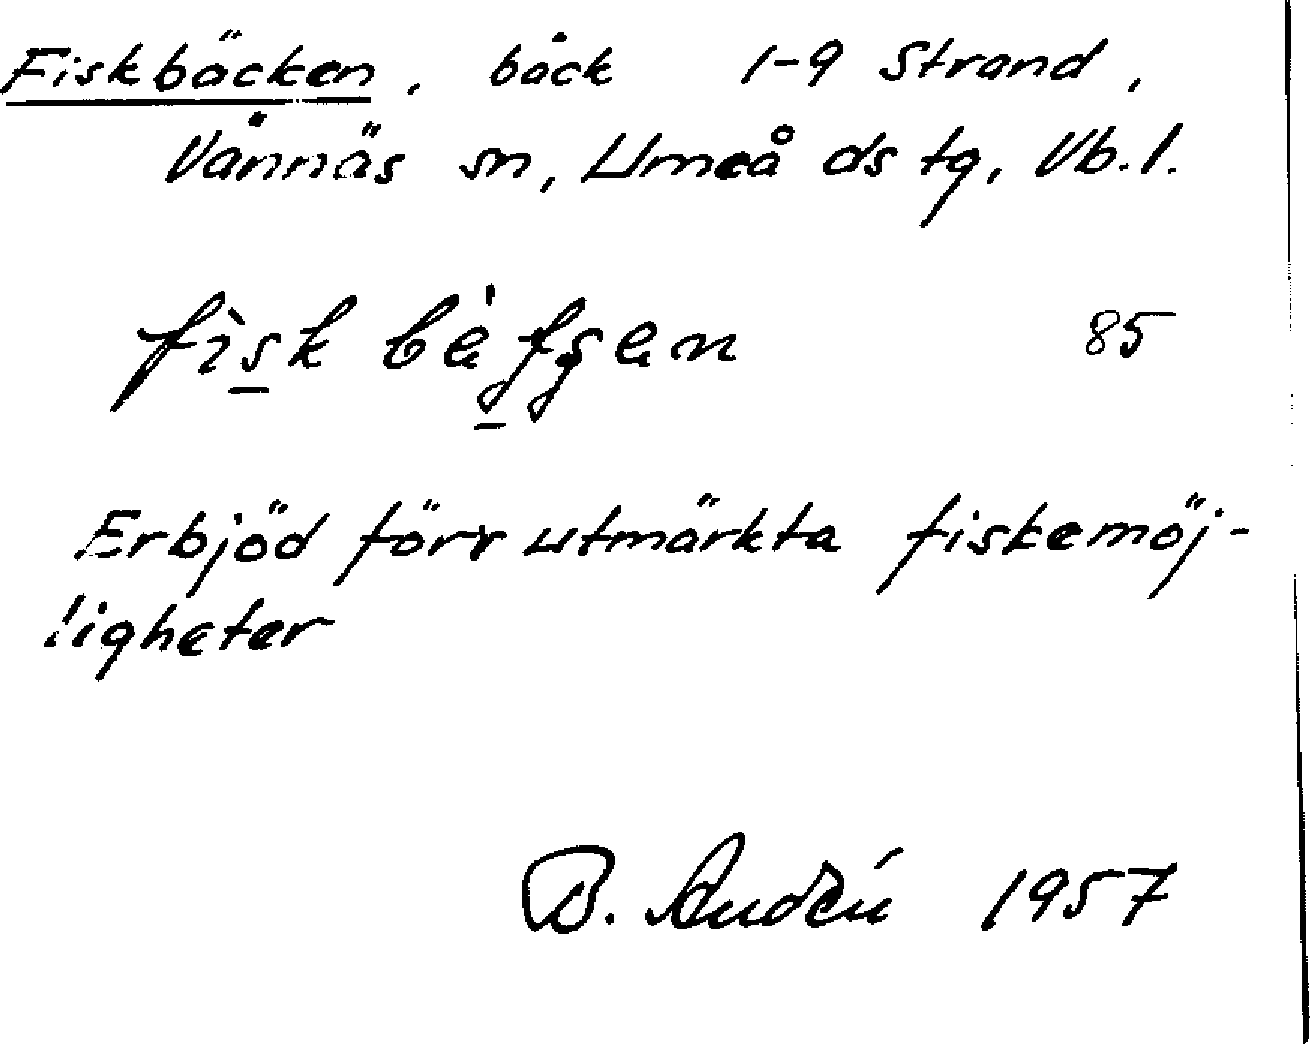 Fiskbäcken, bäck 1-9 Strand,
Vännäs sn, Umeå ds tg, Vb. l.
fìsk
85
Erbjöd förr utmärkta fiskemöj-
ligheter
B. Audén 1957